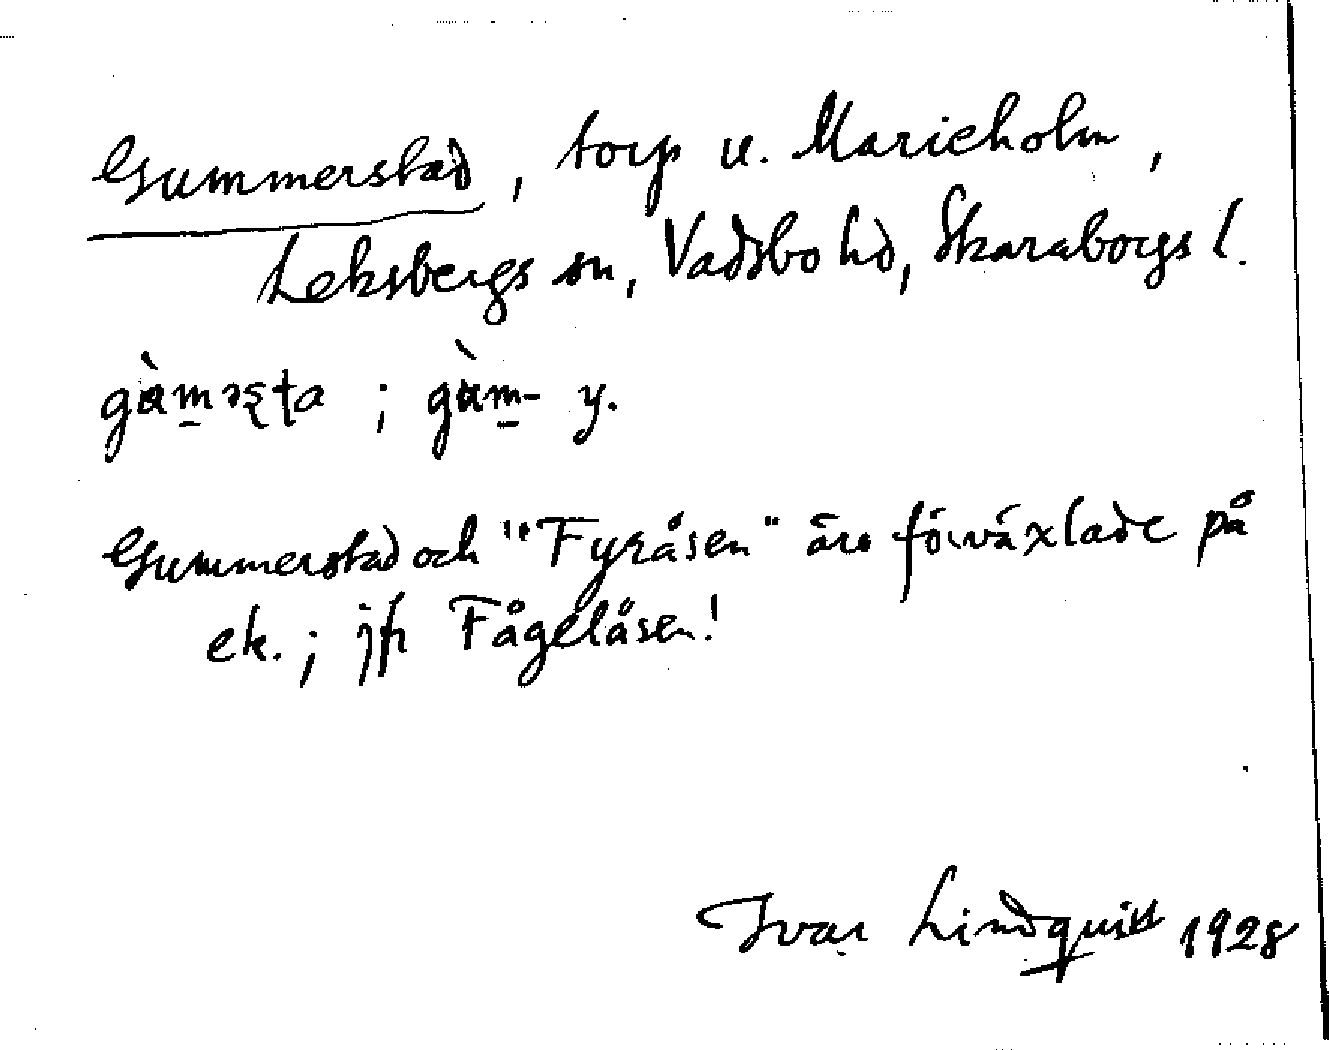 Gummerstad, torp u. Marieholm,
Leksbergs sn, Vadsbo hd, Skaraborgs l.
; y.
Gummerstad och "Fyråsen" äro förväxlade på
ek.; jfr Fågelåsen!
Ivar Lindquist 1928